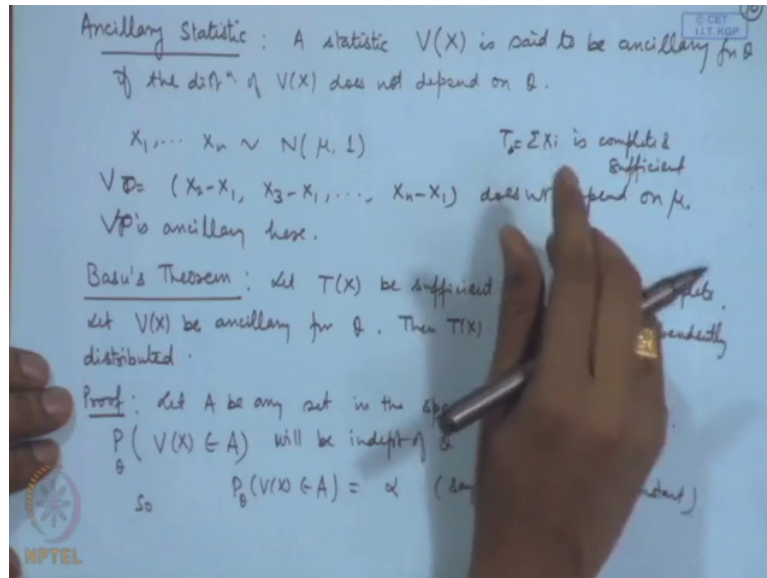 © CET
I.I.T. KGP
Ancillary Statistic : A statistic V(X) is said to be ancillary for θ
if the distⁿ. of V(X) does not depend on θ.
X₁, ... Xₙ ~ N(μ, 1) T = ΣXi is complete &
sufficient
V = (X₂-X₁, X₃-X₁, ..., Xₙ-X₁) does not depend on μ.
V is ancillary here.
Basu's Theorem : Let T(X) be sufficient
Let V(X) be ancillary for θ. Then T(X)
distributed.
Proof : Let A be any set in the
P_θ ( V(X) ∈ A) will be indept of θ
So P_θ (V(X) ∈ A) = α
NPTEL